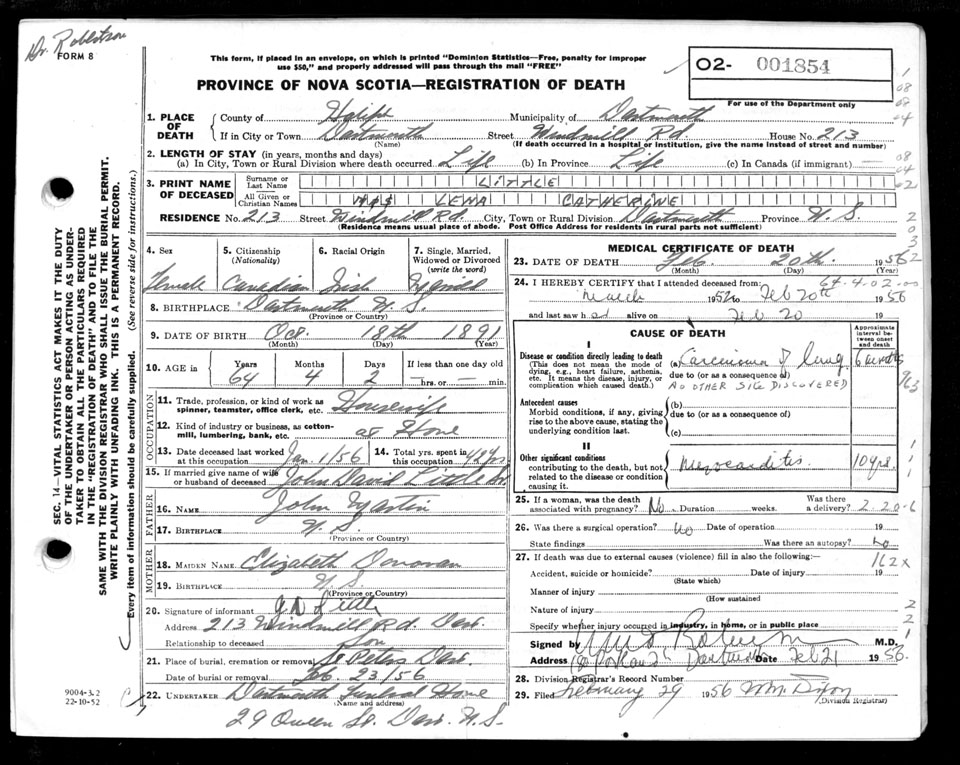 Dr. Robertson
FORM 8
This form, if placed in an envelope, on which is printed "Dominion Statistics—Free, penalty for improper
use $50," and properly addressed will pass through the mail "FREE"
PROVINCE OF NOVA SCOTIA—REGISTRATION OF DEATH
O2- 001854
For use of the Department only
1. PLACE OF DEATH
County of Halifax Municipality of Dartmouth
If in City or Town Dartmouth Street Windmill Rd. House No. 213
(Name) (If death occurred in a hospital or institution, give the name instead of street and number)
2. LENGTH OF STAY (in years, months and days)
(a) In City, Town or Rural Division where death occurred Life (b) In Province Life (c) In Canada (if immigrant) —
3. PRINT NAME OF DECEASED
Surname or Last Name LITTLE
All Given or Christian Names MRS LENA CATHERINE
RESIDENCE No. 213 Street Windmill Rd. City, Town or Rural Division Dartmouth Province N. S.
(Residence means usual place of abode. Post Office Address for residents in rural parts not sufficient)
4. Sex Female
5. Citizenship (Nationality) Canadian
6. Racial Origin Irish
7. Single, Married, Widowed or Divorced (write the word) Married
8. BIRTHPLACE Dartmouth N. S.
(Province or Country)
9. DATE OF BIRTH Oct. 18th 1891
(Month) (Day) (Year)
10. AGE in Years 64 Months 4 Days 2 If less than one day old — hrs. or — min.
OCCUPATION
11. Trade, profession or kind of work as spinner, teamster, office clerk, etc. Housewife
12. Kind of industry or business, as cotton-mill, lumbering, bank, etc. at Home
13. Date deceased last worked at this occupation Jan. 1/56
14. Total yrs. spent in this occupation 42 yrs
15. If married give name of wife or husband of deceased John David Little Sr.
FATHER
16. NAME John Martin
17. BIRTHPLACE N. S.
(Province or Country)
MOTHER
18. MAIDEN NAME Elizabeth Donovan
19. BIRTHPLACE N. S.
(Province or Country)
20. Signature of informant J D Little
Address 213 Windmill Rd. Dart.
Relationship to deceased Son
21. Place of burial, cremation or removal St Peters Dart.
Date of burial or removal Feb. 23/56
22. UNDERTAKER Dartmouth Funeral Home
(Name and address)
29 Queen St. Dart. N. S.
MEDICAL CERTIFICATE OF DEATH
23. DATE OF DEATH Feb. 20th. 1956
(Month) (Day) (Year)
24. I HEREBY CERTIFY that I attended deceased from 64-4-02-00
March 1952 to Feb 20th 1956
and last saw h er alive on Feb 20 19
CAUSE OF DEATH
Approximate interval between onset and death
I
Disease or condition directly leading to death
(This does not mean the mode of dying, e.g., heart failure, asthenia, etc. It means the disease, injury, or complication which caused death.)
(a) Carcinoma of lung 6 months
due to (or as a consequence of)
NO OTHER SITE DISCOVERED
163
Antecedent causes
Morbid conditions, if any, giving rise to the above cause, stating the underlying condition last.
(b)
due to (or as a consequence of)
(c)
II
Other significant conditions
contributing to the death, but not related to the disease or condition causing it.
Myocarditis 10 yrs.
25. If a woman, was the death associated with pregnancy? No Duration weeks. Was there a delivery? 2-20-6
26. Was there a surgical operation? No Date of operation 19
State findings Was there an autopsy? No
27. If death was due to external causes (violence) fill in also the following: 162x
Accident, suicide or homicide? Date of injury 19
(State which)
Manner of injury
(How sustained
Nature of injury
Specify whether injury occurred in industry, in home, or in public place
Signed by M.D.
Address Dartmouth Date Feb 21 1956
28. Division Registrar's Record Number
29. Filed February 29 1956 W M Dixon
(Division Registrar)
SEC. 14—VITAL STATISTICS ACT MAKES IT THE DUTY
OF THE UNDERTAKER OR PERSON ACTING AS UNDER-
TAKER TO OBTAIN ALL THE PARTICULARS REQUIRED
IN THE "REGISTRATION OF DEATH" AND TO FILE THE
SAME WITH THE DIVISION REGISTRAR WHO SHALL ISSUE THE BURIAL PERMIT.
WRITE PLAINLY WITH UNFADING INK. THIS IS A PERMANENT RECORD.
Every item of information should be carefully supplied. (See reverse side for instructions.)
9004-3.2
22-10-52